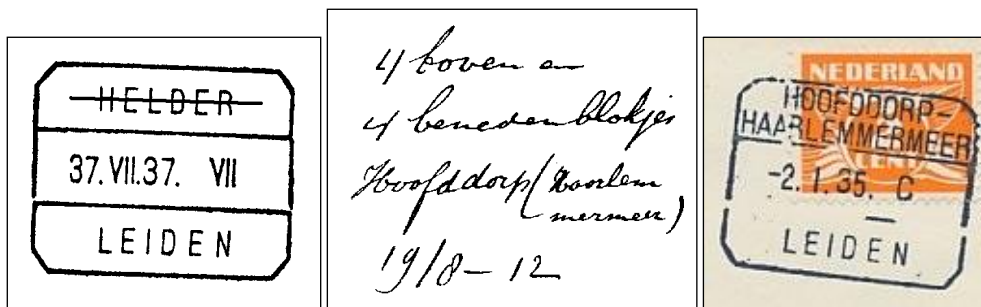 HELDER
37.VII.37. VII
LEIDEN
4 boven en
4 benedenblokjes
Hoofddorp (Haarlem
mermeer)
19/8-12
NEDERLAND
HOOFDDORP-
HAARLEMMERMEER
CENT
-2.1.35. C
LEIDEN